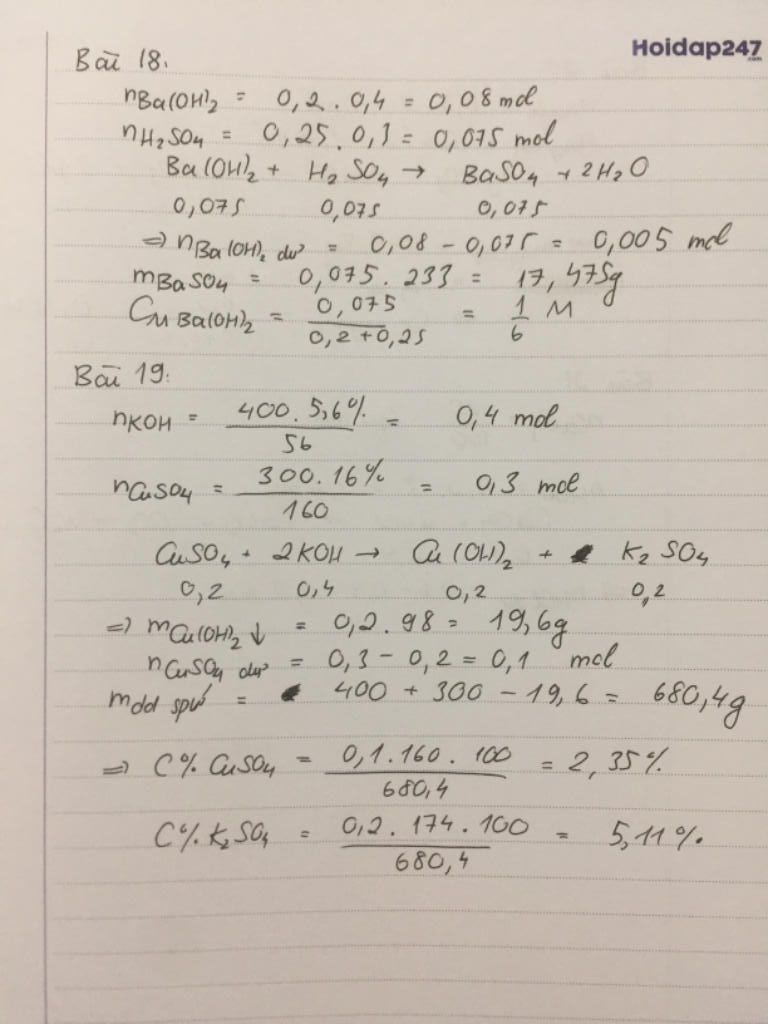 Hoidap247
.com
Bài 18:
nBa(OH)₂ = 0,2 . 0,4 = 0,08 mol
nH₂SO₄ = 0,25 . 0,3 = 0,075 mol
Ba(OH)₂ + H₂SO₄ → BaSO₄ + 2H₂O
0,075 0,075 0,075
⇒ nBa(OH)₂ dư = 0,08 - 0,075 = 0,005 mol
mBaSO₄ = 0,075 . 233 = 17,475g
CM Ba(OH)₂ = 0,075 / 0,2 + 0,25 = 1/6 M
Bài 19:
nKOH = 400 . 5,6% / 56 = 0,4 mol
nCuSO₄ = 300 . 16% / 160 = 0,3 mol
CuSO₄ + 2KOH → Cu(OH)₂ + K₂SO₄
0,2 0,4 0,2 0,2
⇒ mCu(OH)₂↓ = 0,2 . 98 = 19,6g
nCuSO₄ dư = 0,3 - 0,2 = 0,1 mol
mdd spứ = 400 + 300 - 19,6 = 680,4g
⇒ C% CuSO₄ = 0,1 . 160 . 100 / 680,4 = 2,35%
C% K₂SO₄ = 0,2 . 174 . 100 / 680,4 = 5,11%